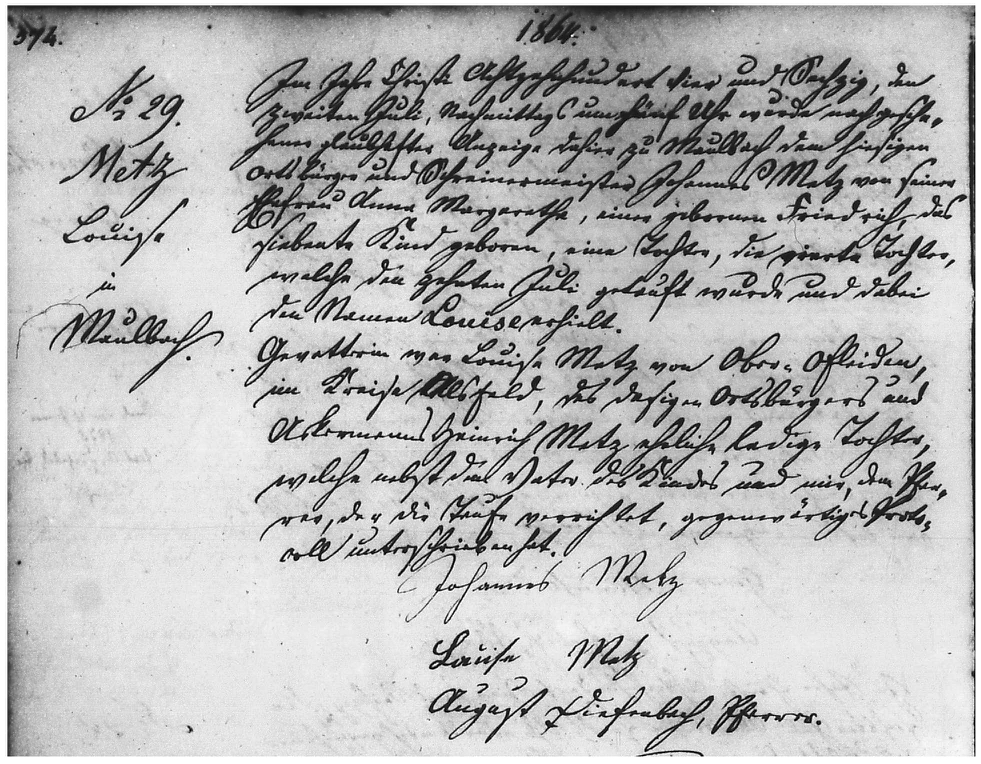 574.
1864.
No 29.
Metz
Louise
in
Maulbach.
Im Jahre Christi Achtzehnhundert vier und Sechzig, den
zweiten Juli, Nachmittags um fünf Uhr wurde nach gesche-
hener glaubhafter Anzeige dahier zu Maulbach dem hiesigen
Ortsbürger und Schreinermeister Johannes Metz von seiner
Ehefrau Anna Margarethe, einer gebornen Friedrich, das
siebente Kind geboren, eine Tochter, die vierte Tochter,
welche den zehnten Juli getauft wurde und dabei
den Namen Louise erhielt.
Gevatterin war Louise Metz von Ober-Ofleiden,
im Kreise Alsfeld, des dasigen Ortsbürgers und
Ackermanns Heinrich Metz eheliche ledige Tochter,
welche nebst dem Vater des Kindes und mir, dem Pfar-
rer, der die Taufe verrichtet, gegenwärtiges Proto-
coll unterschrieben hat.
Johannes Metz
Louise Metz
August Diefenbach, Pfarrer.